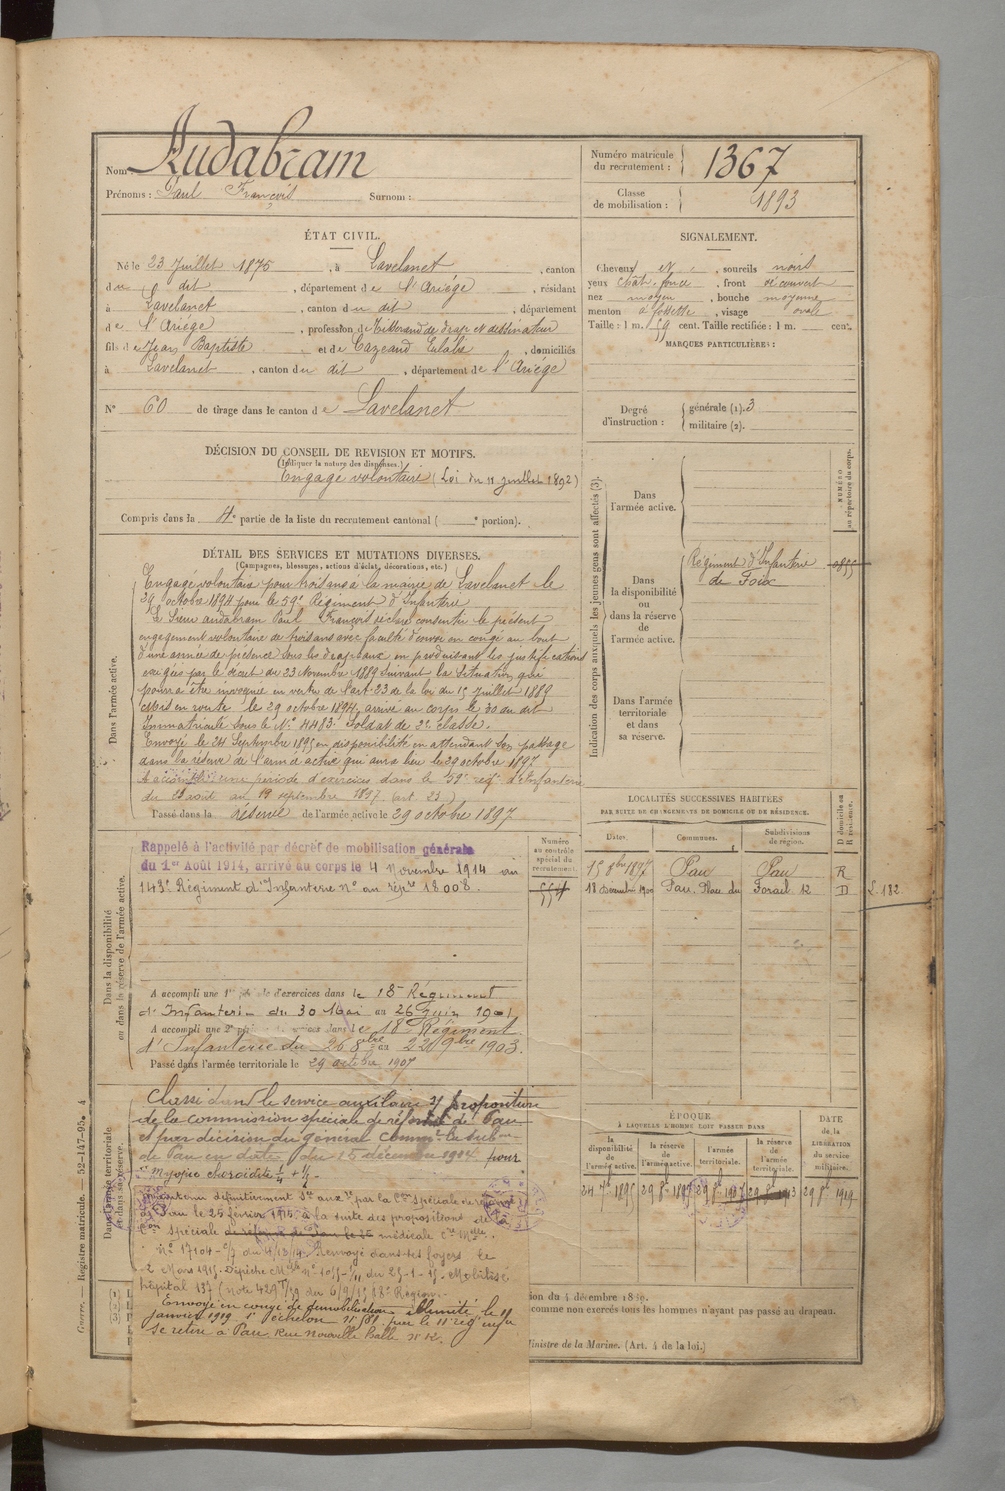 Nom Audabram
Prénoms : Paul François Surnom :
Numéro matricule du recrutement : 1367
Classe de mobilisation : 1893
ÉTAT CIVIL.
Né le 23 Juillet 1875, à Lavelanet, canton
du dit, département de l'Ariège, résidant
à Lavelanet, canton du dit, département
de l'Ariège, profession de Tisserand de drap et dessinateur
fils de Jean Baptiste et de Cazeaud Eulalie, domiciliés
à Lavelanet, canton du dit, département de l'Ariège
N° 60 de tirage dans le canton de Lavelanet
SIGNALEMENT.
Cheveux et, sourcils noirs
yeux chât. foncé, front découvert
nez moyen, bouche moyenne
menton à fossette, visage ovale
Taille : 1 m. 59 cent. Taille rectifiée : 1 m. cent.
MARQUES PARTICULIÈRES :
Degré d'instruction : générale (1). 3
militaire (2).
DÉCISION DU CONSEIL DE REVISION ET MOTIFS.
(Indiquer la nature des dispenses.)
Engagé volontaire (Loi du 11 juillet 1892)
Compris dans la 4e partie de la liste du recrutement cantonal ( e portion).
DÉTAIL DES SERVICES ET MUTATIONS DIVERSES.
(Campagnes, blessures, actions d'éclat, décorations, etc.)
Dans l'armée active.
Engagé volontaire pour trois ans à la mairie de Lavelanet le
29 octobre 1894 pour le 59e Régiment d'Infanterie
Le Sieur Audabram Paul François déclare consentir le présent
engagement volontaire de trois ans avec faculté d'envoi en congé au bout
d'une année de présence sous les drapeaux en produisant les justifications
exigées par le décret du 23 Novembre 1889 suivant la situation qui
pourra être invoquée en vertu de l'art. 23 de la loi du 15 Juillet 1889
Mis en route le 29 octobre 1894, arrivé au corps le 30 du dit
Immatriculé sous le N° 4483. Soldat de 2e classe.
Envoyé le 24 Septembre 1895 en disponibilité en attendant son passage
dans la réserve de l'armée active qui aura lieu le 29 octobre 1897
A accompli une période d'exercices dans le 59e rég. d'Infanterie
du 23 août au 19 septembre 1897 (art. 23)
Passé dans la réserve de l'armée active le 29 octobre 1897
Indication des corps auxquels les jeunes gens sont affectés (3).
NUMÉRO au répertoire du corps.
Dans l'armée active.
Dans la disponibilité ou dans la réserve de l'armée active.
Régiment d'Infanterie de Foix 0855
Dans l'armée territoriale et dans sa réserve.
Dans la disponibilité ou dans la réserve de l'armée active.
Rappelé à l'activité par décret de mobilisation générale
du 1er Août 1914, arrivé au corps le 4 novembre 1914 au
143e Régiment d'Infanterie n° au répre 18008.
Numéro au contrôle spécial du recrutement.
A accompli une 1re période d'exercices dans le 18e Régiment
d'Infanterie du 30 Mai au 26 Juin 1901
A accompli une 2e période d'exercices dans le 18e Régiment
d'Infanterie du 26 8bre au 22 9bre 1903.
Passé dans l'armée territoriale le 29 octobre 1907
LOCALITÉS SUCCESSIVES HABITÉES
PAR SUITE DE CHANGEMENTS DE DOMICILE OU DE RÉSIDENCE.
Dates. Communes. Subdivisions de région. D domicile ou R résidence.
15 8bre 1897 Pau Pau R
18 Décembre 1900 Pau, Place du Foirail 12 D L 182
Dans l'armée territoriale et dans sa réserve.
Classé dans le service auxiliaire s/ proposition
de la commission spéciale de réforme de Pau
et par décision du général Commt la Subon
de Pau en date du 15 décembre 1914 pour
Myopie choroïdite
Maintenu définitivement Sce auxre par la Con spéciale de réforme
de Pau le 25 février 1915 à la suite des propositions de
Con spéciale de réforme de Pau médicale
n° 17104 Renvoyé dans ses foyers le
2 Mars 1915. Dépêche Mlle n° du 25-1-15. Mobilisé
hôpital 137 (note 429 du 6/9/15 18e Région.
Envoyé en congé de démobilisation illimité le 11
janvier 1919 1er échelon n° 581 par le 11e rég inf
Se retire à Pau Rue Nouvelle Halle n° 12.
ÉPOQUE
À LAQUELLE L'HOMME DOIT PASSER DANS
la disponibilité de l'armée active. la réserve de l'armée active. l'armée territoriale. la réserve de l'armée territoriale. DATE de la LIBÉRATION du service militaire.
24 7bre 1895 29 8bre 1897 29 8bre 1907 29 8bre 1913 29 8bre 1919
comme non exercés tous les hommes n'ayant pas passé au drapeau.
Ministre de la Marine. (Art. 4 de la loi.)
Guerre. — Registre matricule. — 52-147-95. 4